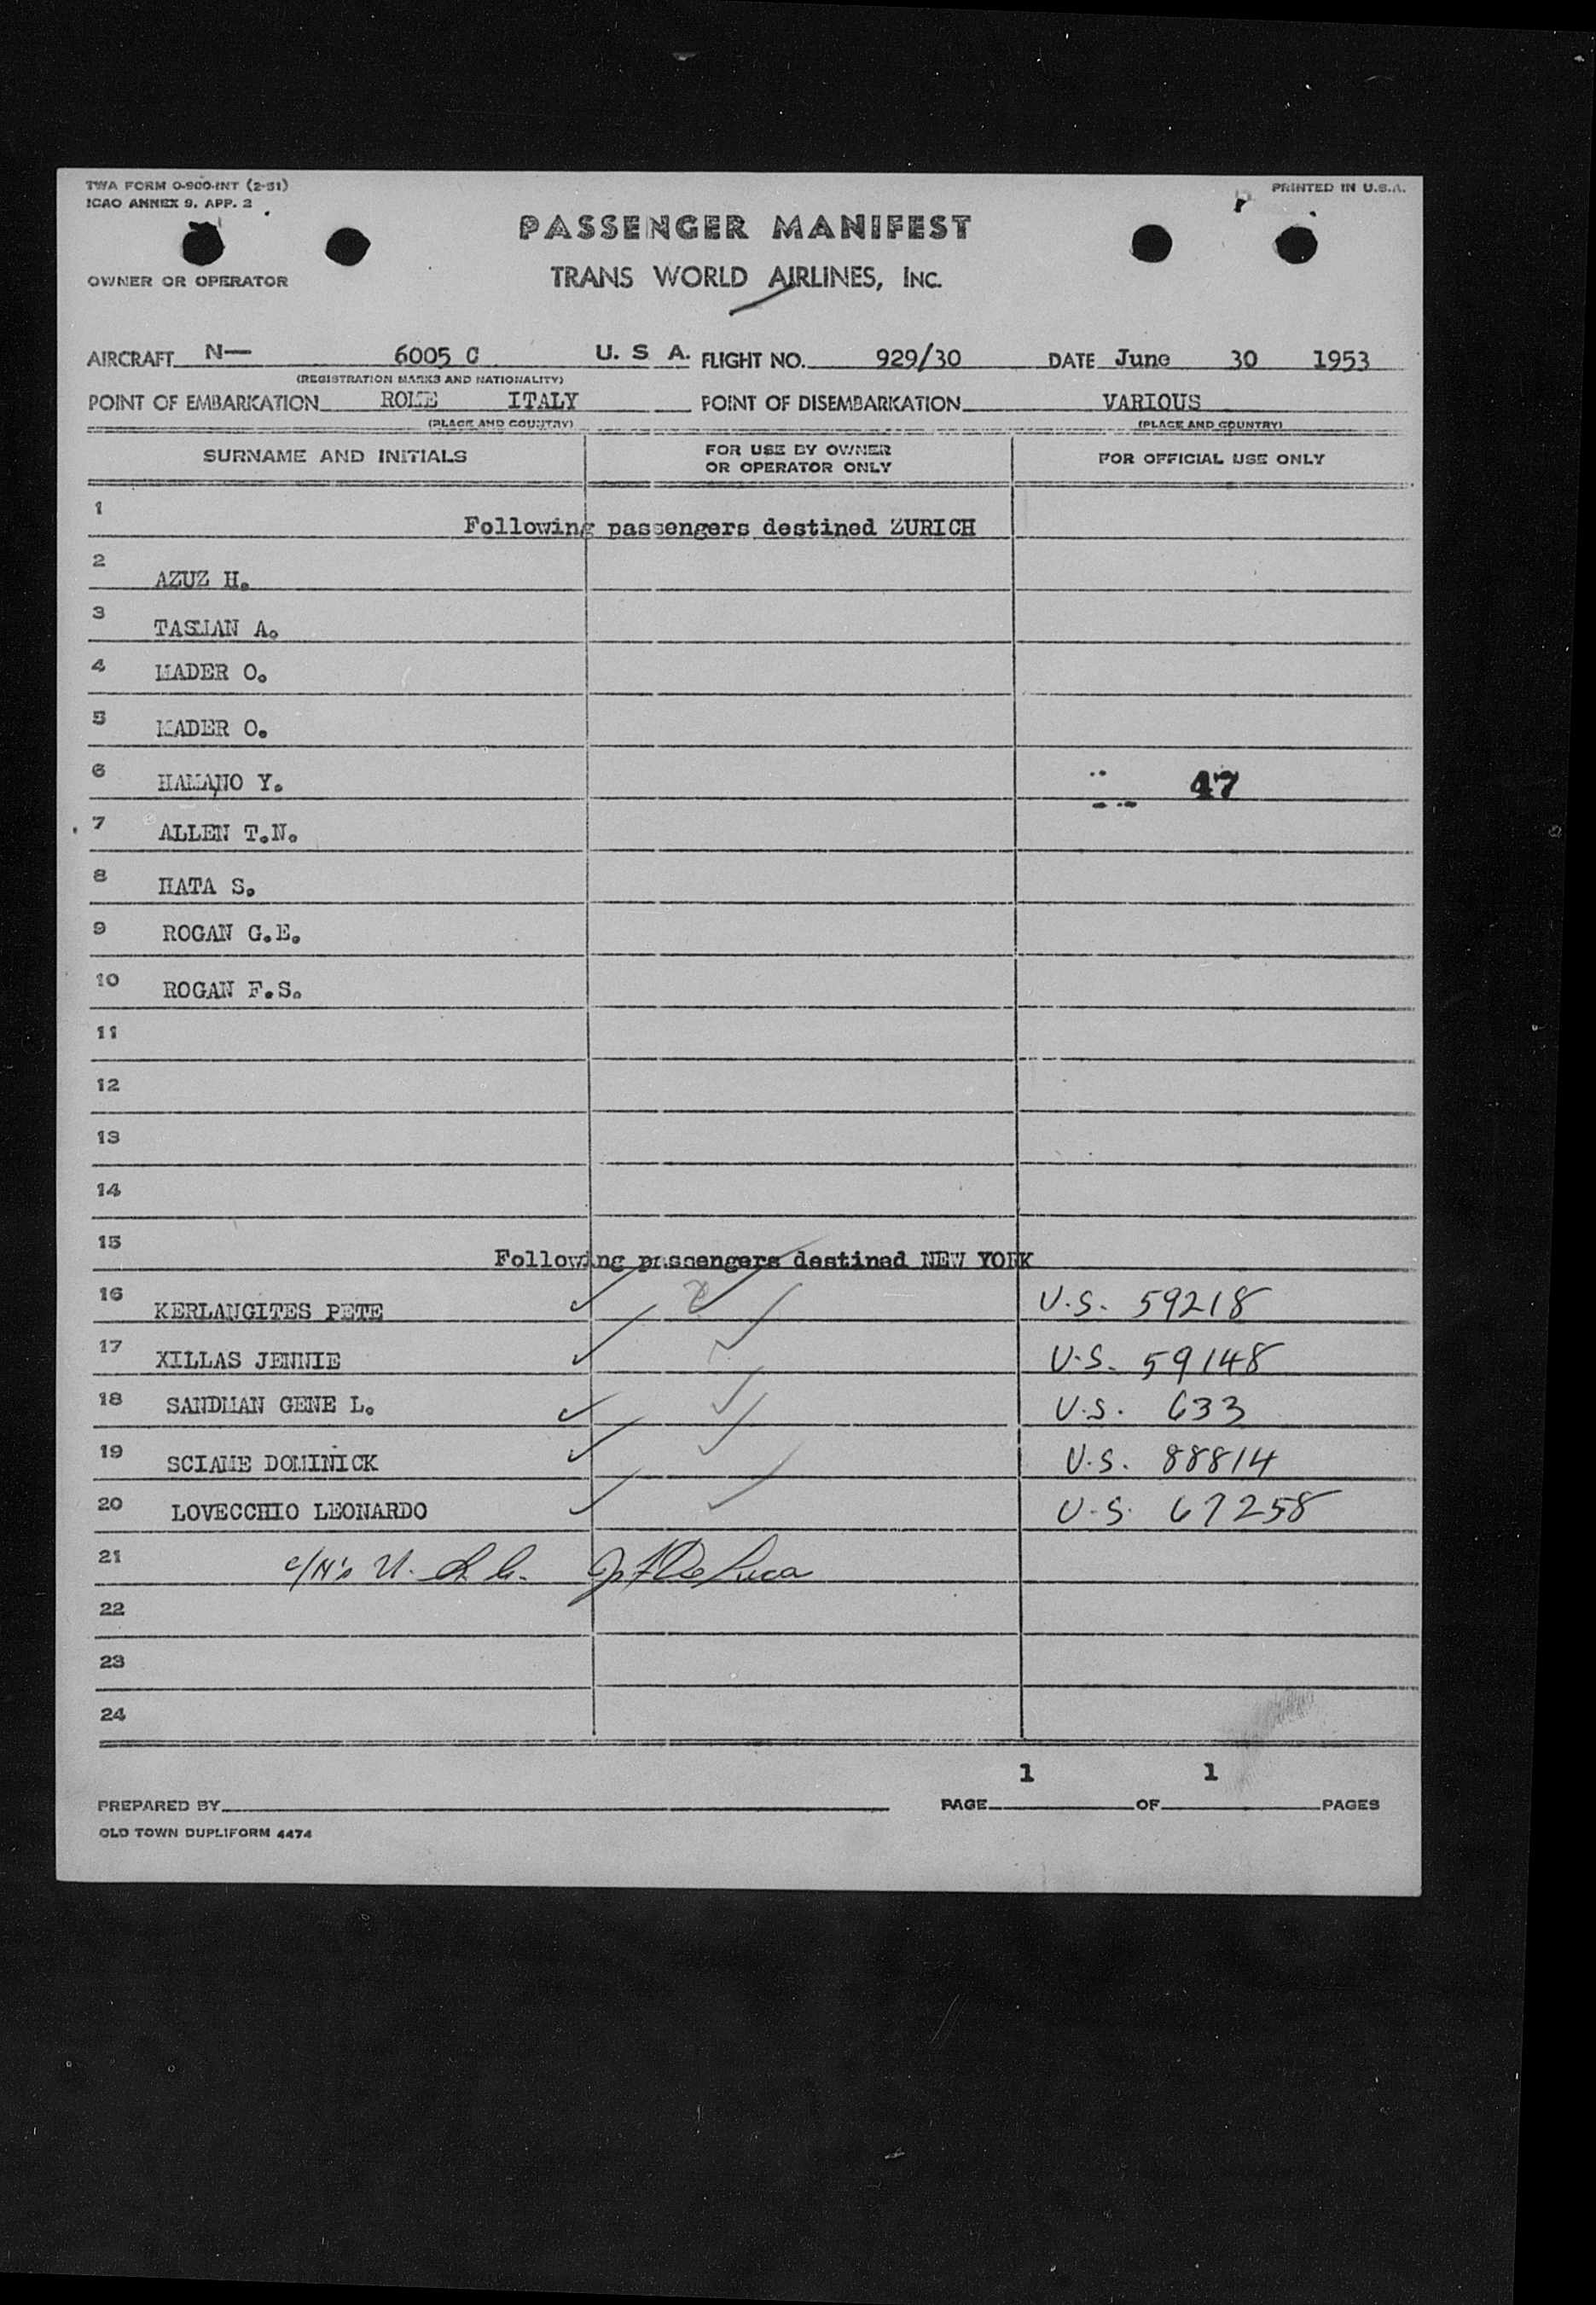 TWA FORM O-900-INT (2-51)
ICAO ANNEX 9, APP. 2
PRINTED IN U.S.A.
PASSENGER MANIFEST
OWNER OR OPERATOR TRANS WORLD AIRLINES, INC.
AIRCRAFT N— 6005 C U. S. A. FLIGHT NO. 929/30 DATE June 30 1953
(REGISTRATION MARKS AND NATIONALITY)
POINT OF EMBARKATION ROME ITALY POINT OF DISEMBARKATION VARIOUS
(PLACE AND COUNTRY) (PLACE AND COUNTRY)
SURNAME AND INITIALS FOR USE BY OWNER OR OPERATOR ONLY FOR OFFICIAL USE ONLY
1 Following passengers destined ZURICH
2 AZUZ H.
3 TASMAN A.
4 MADER O.
5 MADER O.
6 HAMANO Y. 47
7 ALLEN T.N.
8 HATA S.
9 ROGAN G.E.
10 ROGAN F.S.
11
12
13
14
15 Following passengers destined NEW YORK
16 KERLANGITES PETE U.S. 59218
17 XILLAS JENNIE U.S. 59148
18 SANDMAN GENE L. U.S. 633
19 SCIAME DOMINICK U.S. 88814
20 LOVECCHIO LEONARDO U.S. 67258
21
22
23
24
1 1
PREPARED BY PAGE OF PAGES
OLD TOWN DUPLIFORM 4474